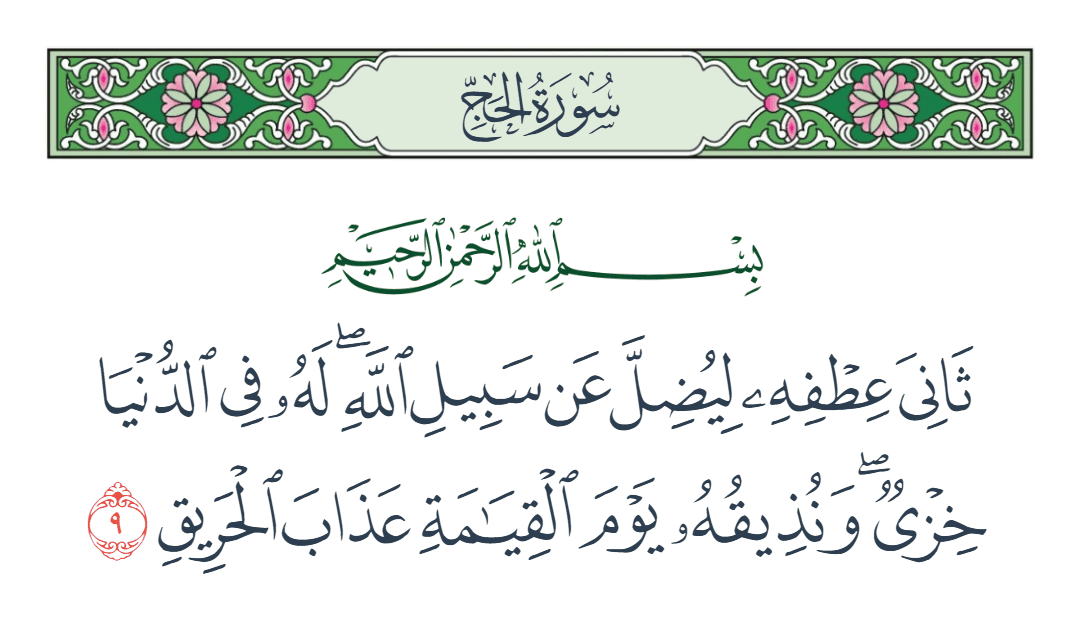 سُورَةُ الحَجِّ
بِسْمِ ٱللَّهِ ٱلرَّحْمَٰنِ ٱلرَّحِيمِ
ثَانِىَ عِطْفِهِۦ لِيُضِلَّ عَن سَبِيلِ ٱللَّهِ ۖ لَهُۥ فِى ٱلدُّنْيَا
خِزْىٌ ۖ وَنُذِيقُهُۥ يَوْمَ ٱلْقِيَـٰمَةِ عَذَابَ ٱلْحَرِيقِ ٩